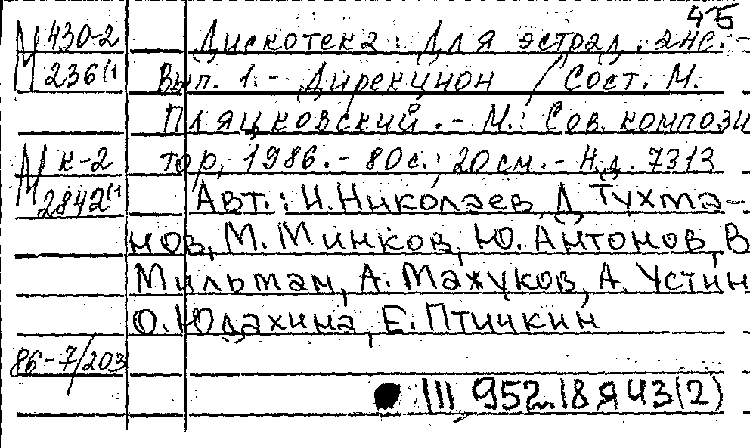 45
М 430-2 Дискотека: Для эстрад. анс. -
М 236(1 Вып. 1. - Дирекцион / Сост. М.
Пляцковский. - М.: Сов. компози
М к-2 тор, 1986. - 80 с.; 20 см. - Н.д. 7313
М 2842(1 Авт.: И. Николаев, Д. Тухма-
нов, М. Минков, Ю. Антонов, В
Мильман, А. Мажуков, А. Устин
О. Юдахина, Е. Птичкин
86-7/203
III 952.18я43(2)